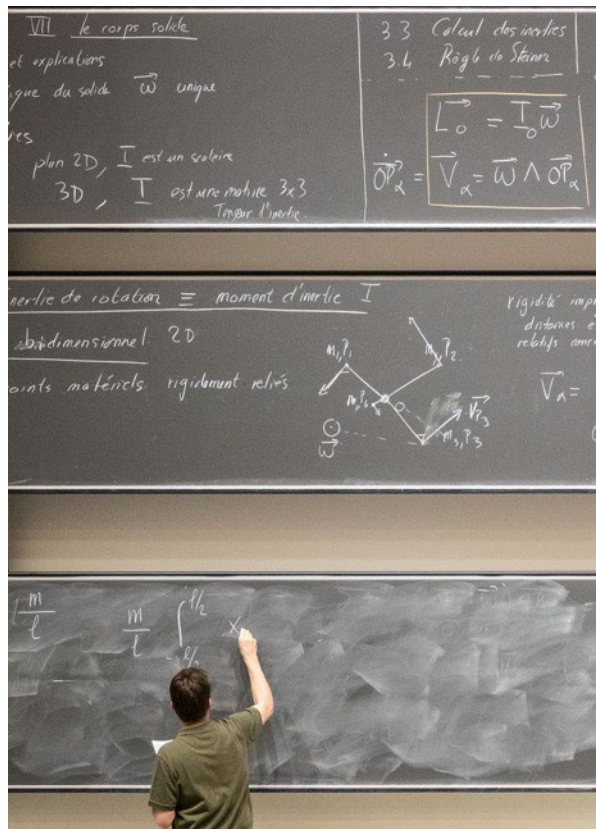 VII le corps solide
et explications
ique du solide ω⃗ unique
res
plan 2D, I est un scalaire
3D, I est une matrice 3x3
Tenseur d'inertie.
3.3 Calcul des inerties
3.4 Règle de Steiner
L⃗o = I_o ω⃗
OP⃗̇α = V⃗α = ω⃗ ∧ OP⃗α
inertie de rotation ≡ moment d'inertie I
bidimensionnel 2D
oints matériels rigidement reliés.
m₁,P₁
P₂
O
V⃗P₃
m₃,P₃
ω⃗
rigidité imp
distances e
relatifs
V⃗α =
m/l
m/l ∫ l/2 x